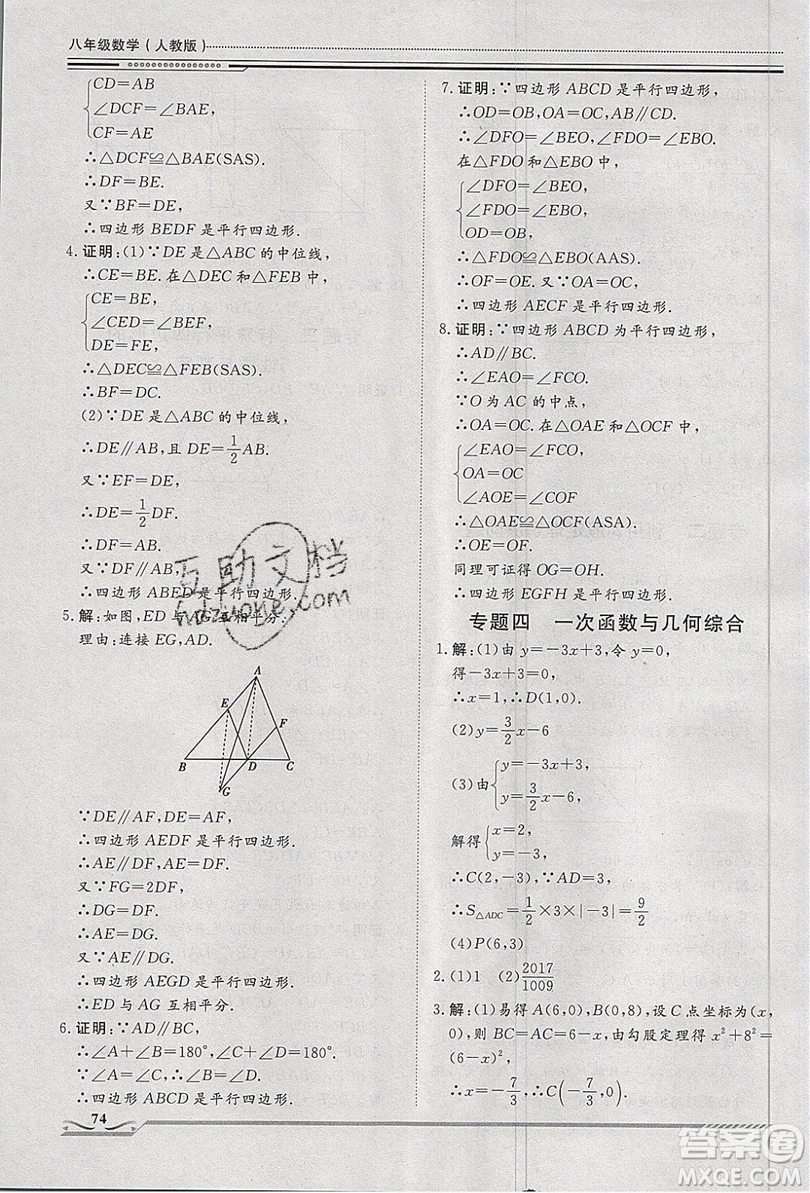 八年级数学(人教版)
CD=AB
∠DCF=∠BAE,
CF=AE
∴△DCF≌△BAE(SAS).
∴DF=BE.
又∵BF=DE,
∴四边形 BEDF 是平行四边形.
4. 证明:(1)∵DE 是△ABC 的中位线,
∴CE=BE.在△DEC 和△FEB 中,
CE=BE,
∠CED=∠BEF,
DE=FE,
∴△DEC≌△FEB(SAS).
∴BF=DC.
(2)∵DE 是△ABC 的中位线,
∴DE∥AB,且 DE=1/2AB.
又∵EF=DE,
∴DE=1/2DF.
∴DF=AB.
又∵DF∥AB,
∴四边形 ABFD 是平行四边形.
5. 解:如图,ED 与 AG 互相平分.
理由:连接 EG,AD.
A
E
F
B
D
C
G
∵DE∥AF,DE=AF,
∴四边形 AEDF 是平行四边形.
∴AE=DF,AE∥DF.
又∵FG=2DF,
∴DG=DF.
∴AE=DG.
又∵AE∥DG.
∴四边形 AEGD 是平行四边形.
∴ED 与 AG 互相平分.
6. 证明:∵AD∥BC,
∴∠A+∠B=180°,∠C+∠D=180°.
∵∠A=∠C,∴∠B=∠D.
∴四边形 ABCD 是平行四边形.
74
7. 证明:∵四边形 ABCD 是平行四边形,
∴OD=OB,OA=OC,AB∥CD.
∴∠DFO=∠BEO,∠FDO=∠EBO.
在△FDO 和△EBO 中,
∠DFO=∠BEO,
∠FDO=∠EBO,
OD=OB,
∴△FDO≌△EBO(AAS).
∴OF=OE.又∵OA=OC,
∴四边形 AECF 是平行四边形.
8. 证明:∵四边形 ABCD 为平行四边形,
∴AD∥BC.
∴∠EAO=∠FCO.
∵O 为 AC 的中点,
∴OA=OC.在△OAE 和△OCF 中,
∠EAO=∠FCO,
OA=OC
∠AOE=∠COF
∴△OAE≌△OCF(ASA).
∴OE=OF.
同理可证得 OG=OH.
∴四边形 EGFH 是平行四边形.
专题四 一次函数与几何综合
1. 解:(1)由 y=-3x+3,令 y=0,
得-3x+3=0,
∴x=1,∴D(1,0).
(2)y=3/2x-6
(3)由 y=-3x+3,
y=3/2x-6,
解得 x=2,
y=-3,
∴C(2,-3).∵AD=3,
∴S△ADC=1/2×3×|-3|=9/2
(4)P(6,3)
2. (1)1 (2)2017/1009
3. 解:(1)易得 A(6,0),B(0,8),设 C 点坐标为(x,
0),则 BC=AC=6-x,由勾股定理得 x²+8²=
(6-x)²,
∴x=-7/3,∴C(-7/3,0).
互助文档
答案圈
MXQE.COM